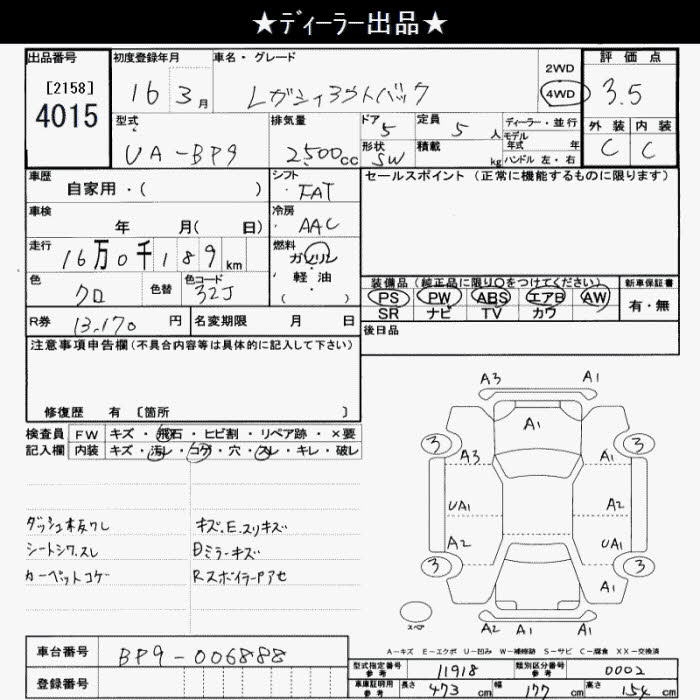 ★ディーラー出品★
出品番号
[2158]
4015
初度登録年月
16 3月
車名・グレード
レガシィ3ストバック
2WD
4WD
評価点
3.5
型式
UA-BP9
排気量
2500cc
ドア
5
形状
SW
定員
5人
積載
kg
ディーラー・並行
モデル年式 年
ハンドル 左・右
外装 内装
C C
車歴
自家用・( )
シフト
FAT
セールスポイント (正常に機能するものに限ります)
車検
年 月( 日)
冷房
AAC
走行
16万0千189km
燃料
ガソリン
・軽油
( )
色
クロ
色替
色コード
32J
装備品 (純正品に限り○をつけてください)
PS PW ABS エアB AW
SR ナビ TV カワ
新車保証書
有・無
R券 13,170円
名変期限 月 日
後日品
注意事項申告欄(不具合内容等は具体的に記入して下さい)
修復歴 有 〔箇所 〕
検査員 FW キズ・飛石・ヒビ割・リペア跡・×要
記入欄 内装 キズ・汚レ・コゲ・穴・スレ・キレ・破レ
ダッシュ板反りし
シートシワ.スレ
カーペットコゲ
キズ.E.スリキズ
Dミラーキズ
Rスポイラーアセ
A3 A1
A1
3 3
A3 A1
UA1 A2
A2 UA1
3 3
A1
A2 A1 A1
スペア
A-キズ E-エクボ U-凹み W-補修跡 S-サビ C-腐食 XX-交換済
車台番号 BP9-006888
登録番号
型式指定番号 参考 11918
類別区分番号 参考 0002
車庫証明用 参考 長さ 473cm 幅 177cm 高さ 154cm